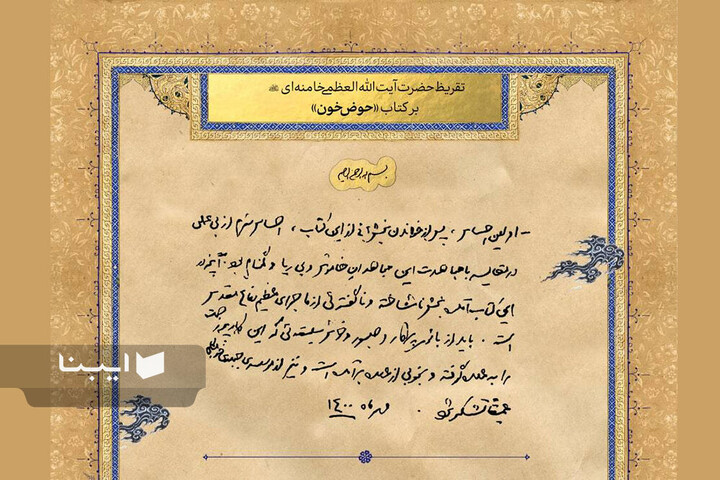 تقریظ حضرت آیت الله العظمی خامنه‌ای
بر کتاب «حوض خون»
بسم الله الرحمن الرحیم
- اولین احساس، پس از خواندن بخشهائی از این کتاب، احساس شرم از بی عملی
در مقایسه با مجاهدت این مجاهدان خاموش و بی ریا و گمنام بود. آنچه در
این کتاب آمده بخش ناشناخته و ناگفته ئی از ماجرای عظیم دفاع مقدس
است. باید از بانوی پرکار و صبور و خوش سلیقه ئی که این کار پرزحمت
را به عهده گرفته و بخوبی از عهده برآمده است و نیز از
تشکر شود
مهرماه ۱۴۰۰
ایبنا